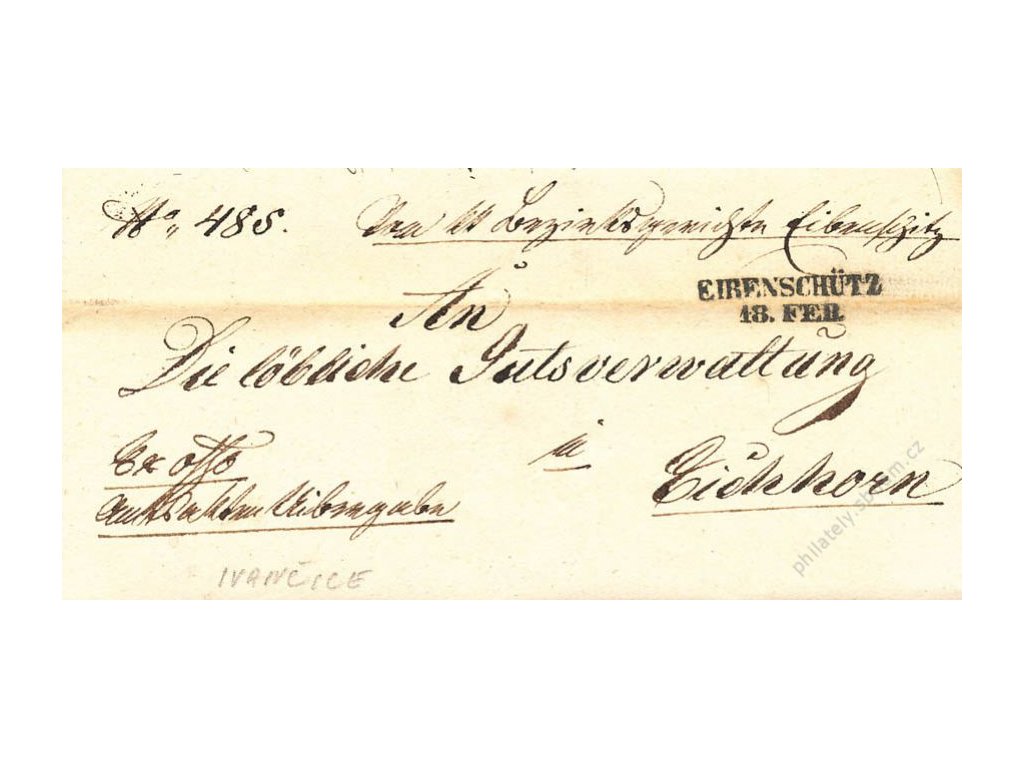 No 485. Vom kk Bezirksgerichte Eibenschitz
EIBENSCHÜTZ
18. FEB.
An
Die löbliche Gutsverwaltung
in
Eichhorn
Ex offo
IVANČICE
philately.sbeam.cz